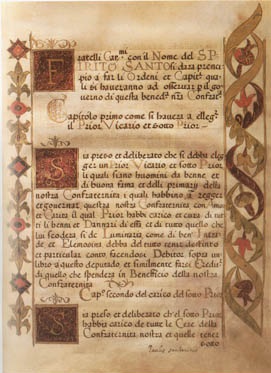 Fratelli Car.mi con il Nome del SP
IRITO SANTO si dara princi
pio a far li Ordeni et Capit.i qua
li si haveranno ad osservar p il go
verno di questa bened.ta nra Confrat.ta
Capitolo primo come si havera a elleg.r
il Prior Vicario et soto Prior
Sia preso et deliberato che si debba elleg
ger un Prior Vicario et soto Prior
li quali siano huomini da bene et
di buona fama et delli primarij della
nostra Confraternita i quali habbino a regger
et governar questa nostra Confraternita con
et Carita il qual Prior habbi carico et cura di tut
ti li benni et Dannari di essa et di tuto quello che
si scodera si de Luminarij come di ben Intrade
et Elemosine debba del tuto tener destinto
et particular conto facendosi Debitor sopra un
libro a questo deputado et similmente farsi Creditor
di quello che spendera in Beneficio della nostra
Confraternita
Cap.o secondo del carico del soto Prior
Sia preso et deliberato ch'el soto Prior
habbia carico de tute le Cere della
Confraternita nostra et quelle tener
soto